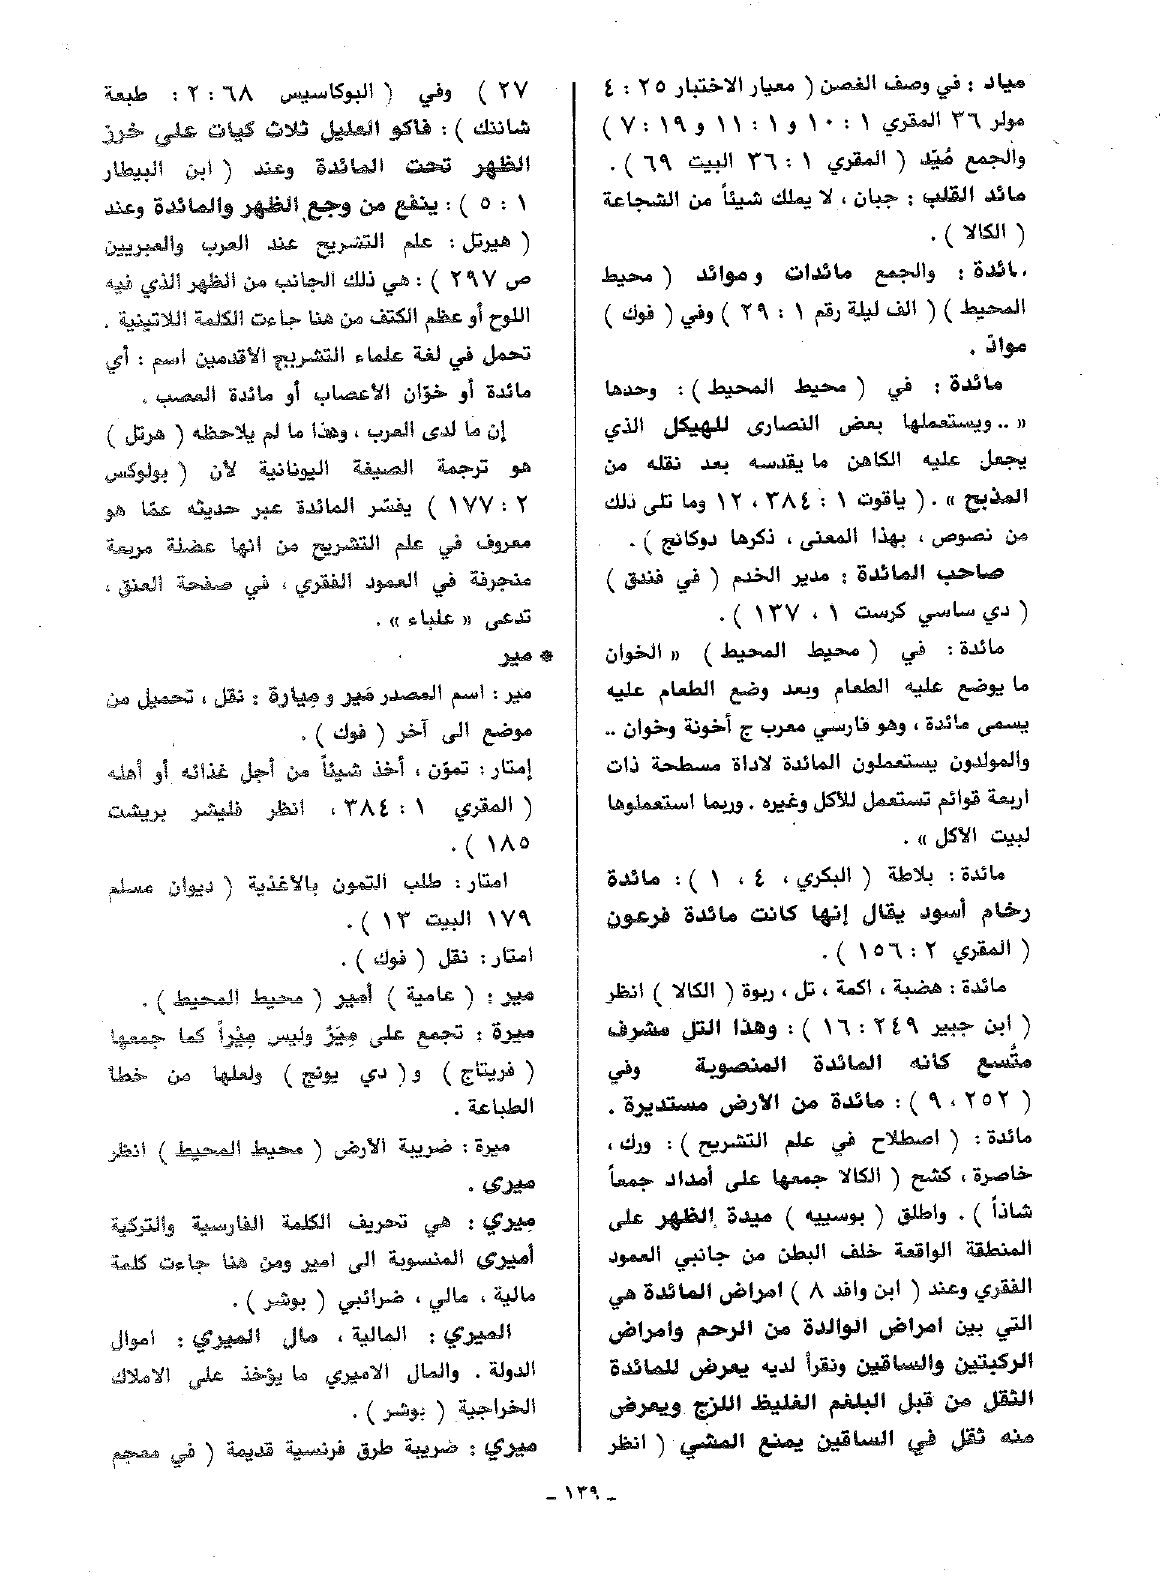 مياد : في وصف الغصن ( معيار الاختبار ٢٥ : ٤
مولر ٣٦ المقري ١ : ١٠ و ١ : ١١ و ١٩ : ٧ )
والجمع مُيّد ( المقري ١ : ٣٦ البيت ٦٩ ) .
مائد القلب : جبان ، لا يملك شيئاً من الشجاعة
( الكالا ) .
ـائدة : والجمع مائدات وموائد ( محيط
المحيط ) ( الف ليلة رقم ١ : ٢٩ ) وفي ( فوك )
موائد .
مائدة : في ( محيط المحيط ) : وحدها
« .. ويستعملها بعض النصارى للهيكل الذي
يجعل عليه الكاهن ما يقدسه بعد نقله من
المذبح » . ( ياقوت ١ : ٣٨٤ ، ١٢ وما تلى ذلك
من نصوص ، بهذا المعنى ، ذكرها دوكانج ) .
صاحب المائدة : مدير الخدم ( في فندق )
( دي ساسي كرست ١ ، ١٣٧ ) .
مائدة : في ( محيط المحيط ) « الخوان
ما يوضع عليه الطعام وبعد وضع الطعام عليه
يسمى مائدة ، وهو فارسي معرب ج أخونة وخوان ..
والمولدون يستعملون المائدة لاداة مسطحة ذات
اربعة قوائم تستعمل للأكل وغيره . وربما استعملوها
لبيت الأكل » .
مائدة : بلاطة ( البكري ، ٤ ، ١ ) : مائدة
رخام أسود يقال إنها كانت مائدة فرعون
( المقري ٢ : ١٥٦ ) .
مائدة : هضبة ، اكمة ، تل ، ربوة ( الكالا ) انظر
( ابن جبير ٢٤٩ : ١٦ ) : وهذا التل مشرف
متّسع كانه المائدة المنصوبة وفي
( ٢٥٢ ، ٩ ) : مائدة من الارض مستديرة .
مائدة : ( اصطلاح في علم التشريح ) : ورك ،
خاصرة ، كشح ( الكالا جمعها على أمداد جمعاً
شاذاً ) . واطلق ( بوسييه ) ميدة الظهر على
المنطقة الواقعة خلف البطن من جانبي العمود
الفقري وعند ( ابن وافد ٨ ) امراض المائدة هي
التي بين امراض الوالدة من الرحم وامراض
الركبتين والساقين ونقرأ لديه يعرض للمائدة
الثقل من قبل البلغم الغليظ اللزج ويعرض
منه ثقل في الساقين يمنع المشي ( انظر
٢٧ ) وفي ( البوكاسيس ٦٨ : ٢ : طبعة
شاننك ) : فاكو العليل ثلاث كيات على خرز
الظهر تحت المائدة وعند ( ابن البيطار
١ : ٥ ) : ينفع من وجع الظهر والمائدة وعند
( هيرتل : علم التشريح عند العرب والعبريين
ص ٢٩٧ ) : هي ذلك الجانب من الظهر الذي فيه
اللوح أو عظم الكتف من هنا جاءت الكلمة اللاتينية .
تحمل في لغة علماء التشريح الأقدمين اسم : أي
مائدة أو خوّان الأعصاب أو مائدة العصب .
إن ما لدى العرب ، وهذا ما لم يلاحظه ( هرتل )
هو ترجمة الصيغة اليونانية لأن ( بولوكس
٢ : ١٧٧ ) يفسّر المائدة عبر حديثه عمّا هو
معروف في علم التشريح من انها عضلة مربعة
منجرفة في العمود الفقري ، في صفحة العنق ،
تدعى « علباء » .
* مير
مير : اسم المصدر مَير و مِيارة : نقل ، تحميل من
موضع الى آخر ( فوك ) .
إمتار : تموّن ، أخذ شيئاً من أجل غذائه أو أهله
( المقري ١ : ٣٨٤ ، انظر فليشر بريشت
١٨٥ ) .
امتار : طلب التمون بالأغذية ( ديوان مسلم
١٧٩ البيت ١٣ ) .
امتار : نقل ( فوك ) .
مير : ( عامية ) أمير ( محيط المحيط ) .
ميرة : تجمع على مِيَرْ وليس مِيْراً كما جمعها
( فريتاج ) و ( دي يونج ) ولعلها من خطأ
الطباعة .
ميرة : ضريبة الأرض ( محيط المحيط ) انظر
ميرى .
ميري : هي تحريف الكلمة الفارسية والتركية
أميري المنسوبة الى امير ومن هنا جاءت كلمة
مالية ، مالي ، ضرائبي ( بوشر ) .
الميري : المالية ، مال الميري : اموال
الدولة . والمال الاميري ما يؤخذ على الاملاك
الخراجية ( بوشر ) .
ميري : ضريبة طرق فرنسية قديمة ( في معجم
ـ ١٣٩ ـ